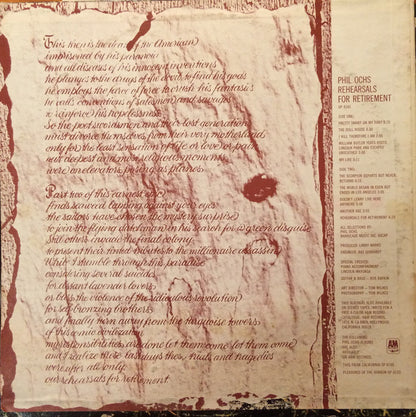 This then is the death of the American
imprisoned by his paranoia
and all diseases of his innocent inventions
he plunges to the drugs of the devil to find his gods
he employs the farce of force to crush his fantasies
he calls conventions of salesmen and savages
to reinforce his hopelessness
So the poet swordsmen and their lost generation
must divorce themselves from their very motherland
only for the least sensation of life or love or pain
our deepest and most religious moments
were on elevators posing as planes.
Part two of this earnest epic
finds seaweed lapping against your eyes
the sailors have chosen the mystery surprise
to join the flying dutchman in his search for a green disguise
Still others invade the final colony
to present their tinted tributes to the millionaire assassin
While I stumble through this paradise
considering several suicides
for distant lavender lovers
or bless the violence of the ridiculous revolution
for self bronzing brothers
and finally turn away from the turquoise towers
of this comic civilization
my responsibilities are done let them come let them come
and I realize these last days these trials and tragedies
were after all only
our rehearsals for retirement.
PHIL OCHS
REHEARSALS
FOR RETIREMENT
SP 4181
SIDE ONE:
PRETTY SMART ON MY PART
THE DOLL HOUSE
I KILL THEREFORE I AM
WILLIAM BUTLER YEATS VISITS
LINCOLN PARK AND ESCAPES
UNSCATHED
MY LIFE
SIDE TWO:
THE SCORPION DEPARTS BUT NEVER
RETURNS
THE WORLD BEGAN IN EDEN BUT
ENDED IN LOS ANGELES
DOESN'T LENNY LIVE HERE
ANYMORE
ANOTHER AGE
REHEARSALS FOR RETIREMENT
ALL SELECTIONS BY
PHIL OCHS
BARRICADE MUSIC INC. ASCAP
PRODUCER: LARRY MARKS
SPECIAL THANKS:
PIANO ACCOMPANIMENT
LINCOLN MAYORGA
GUITAR & BASS - BOB RAFKIN
ART DIRECTION - TOM WILKES
PHOTOGRAPHY - TOM WILKES
A&M